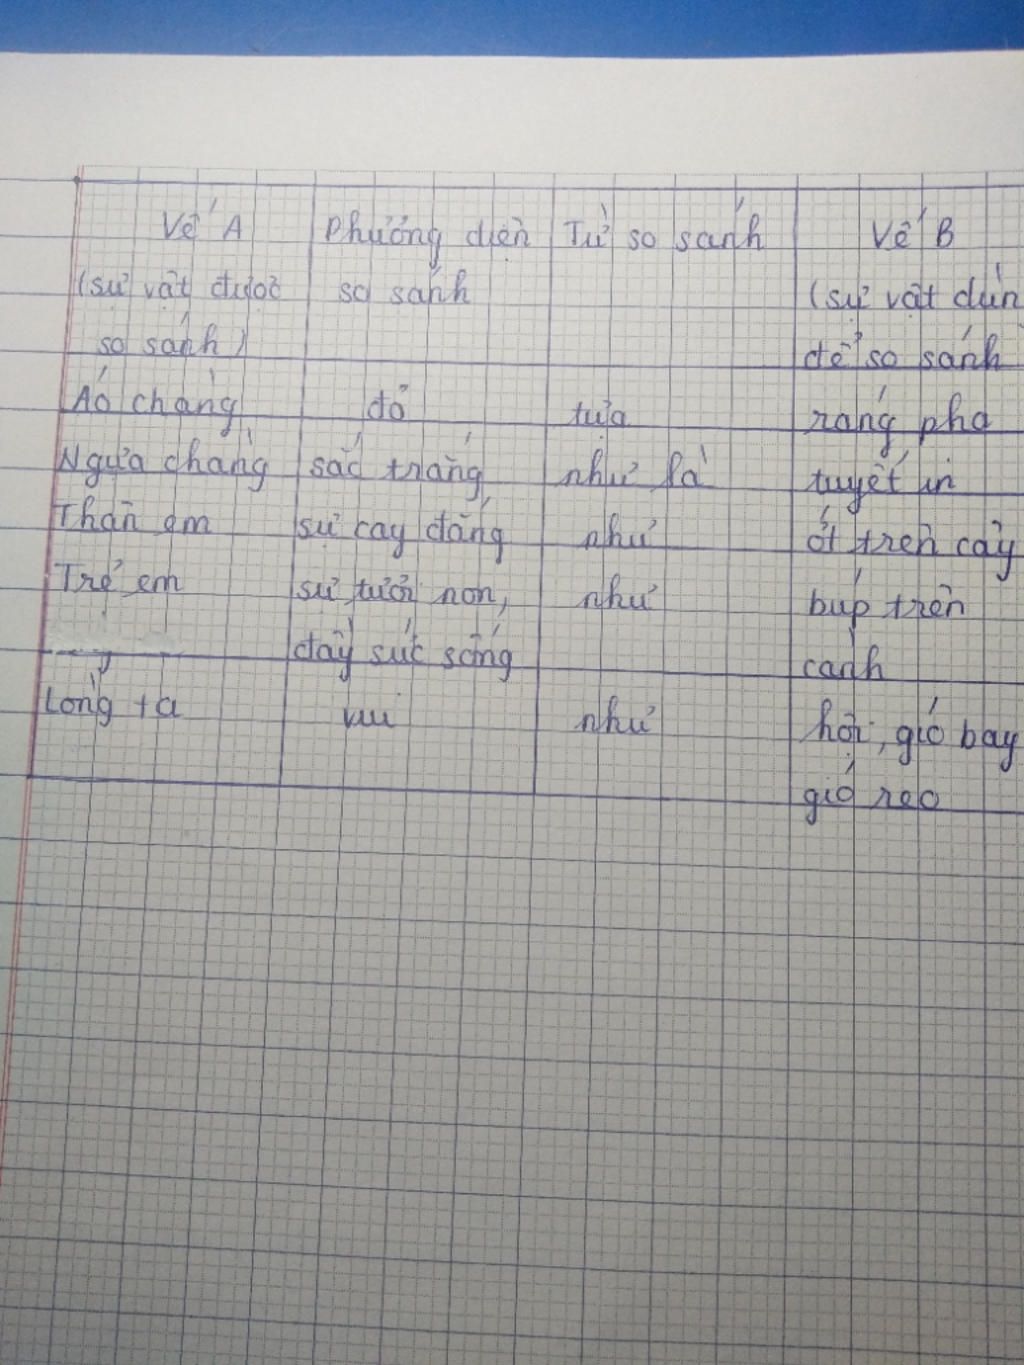 Vế A Phương diện Từ so sánh Vế B
(sự vật được so sánh (sự vật dùn
so sánh) để so sánh
Áo chàng đỏ tựa ráng pha
Ngựa chàng sắc trắng như là tuyết in
Thân em sự cay đắng như ớt trên cây
Trẻ em sự tươi non, như búp trên
đầy sức sống cành
Lòng ta vui như hội, gió bay
gió reo